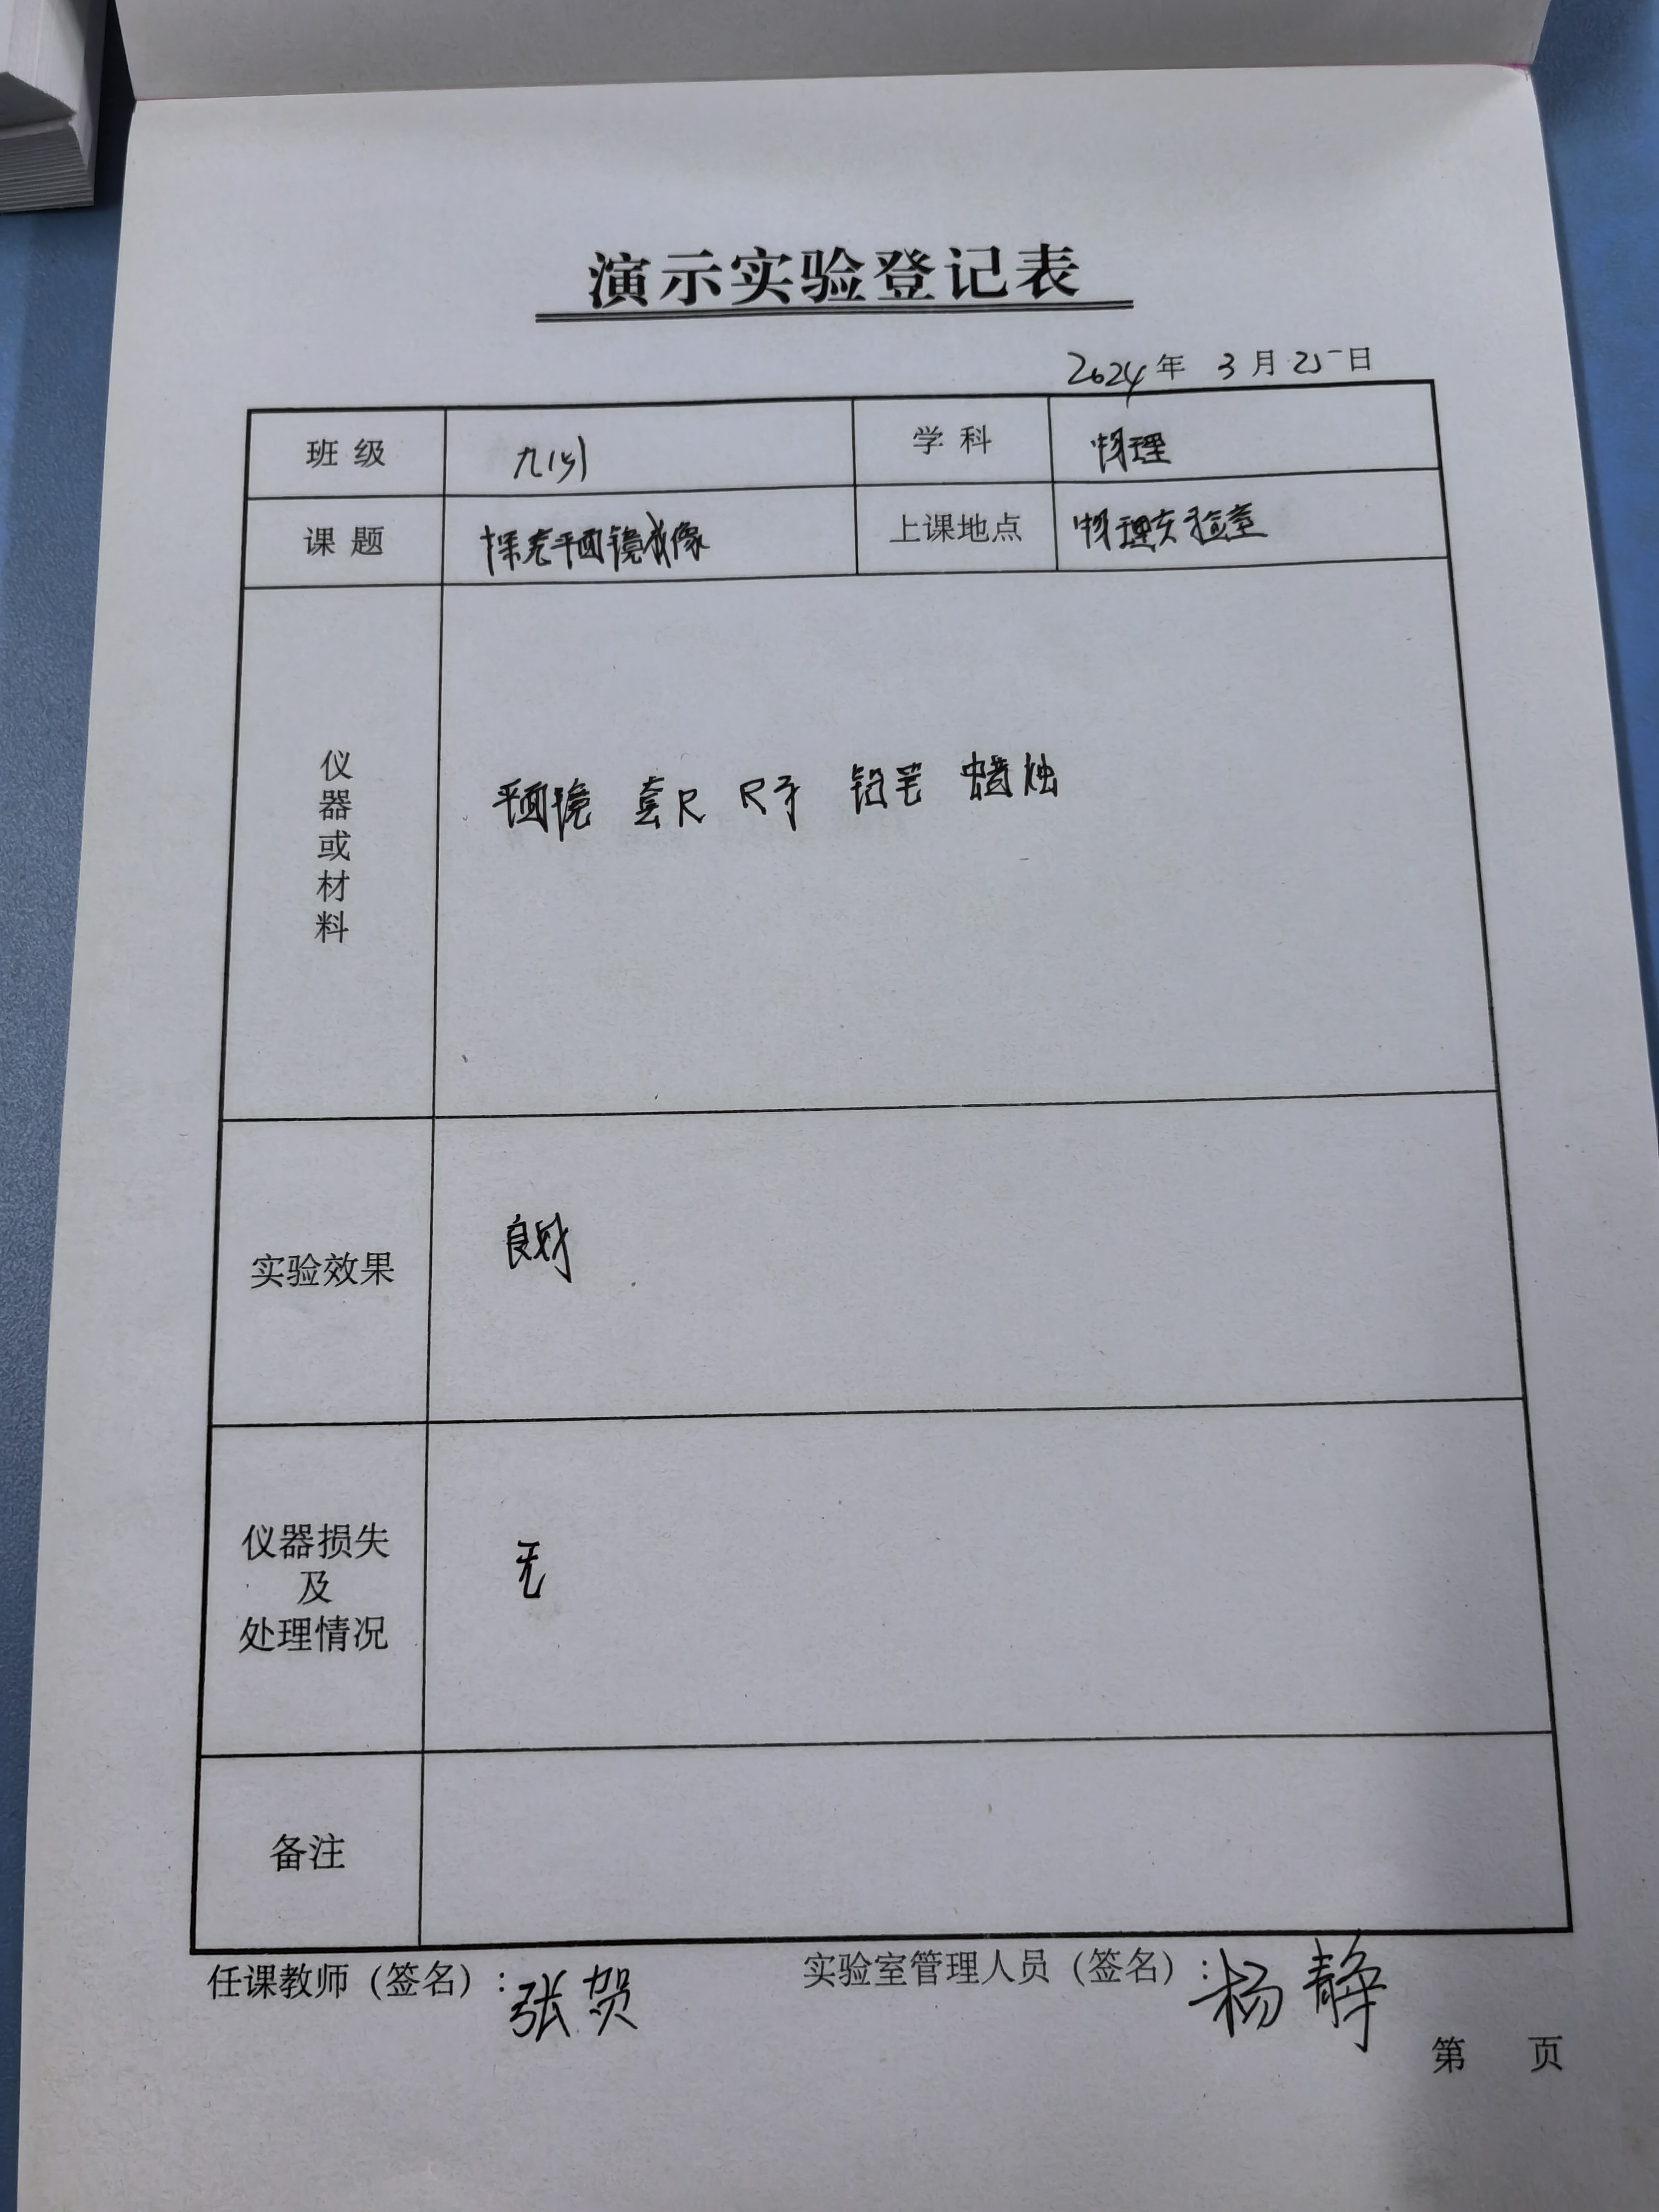 演示实验登记表
2024年 3月25日
班级 学科 物理
课题 探究平面镜成像 上课地点 物理实验室
仪器或材料
平面镜 套尺 尺子 铅笔 蜡烛
实验效果 良好
仪器损失
及
处理情况
无
备注
任课教师（签名）：张贺 实验室管理人员（签名）：杨静
第 页